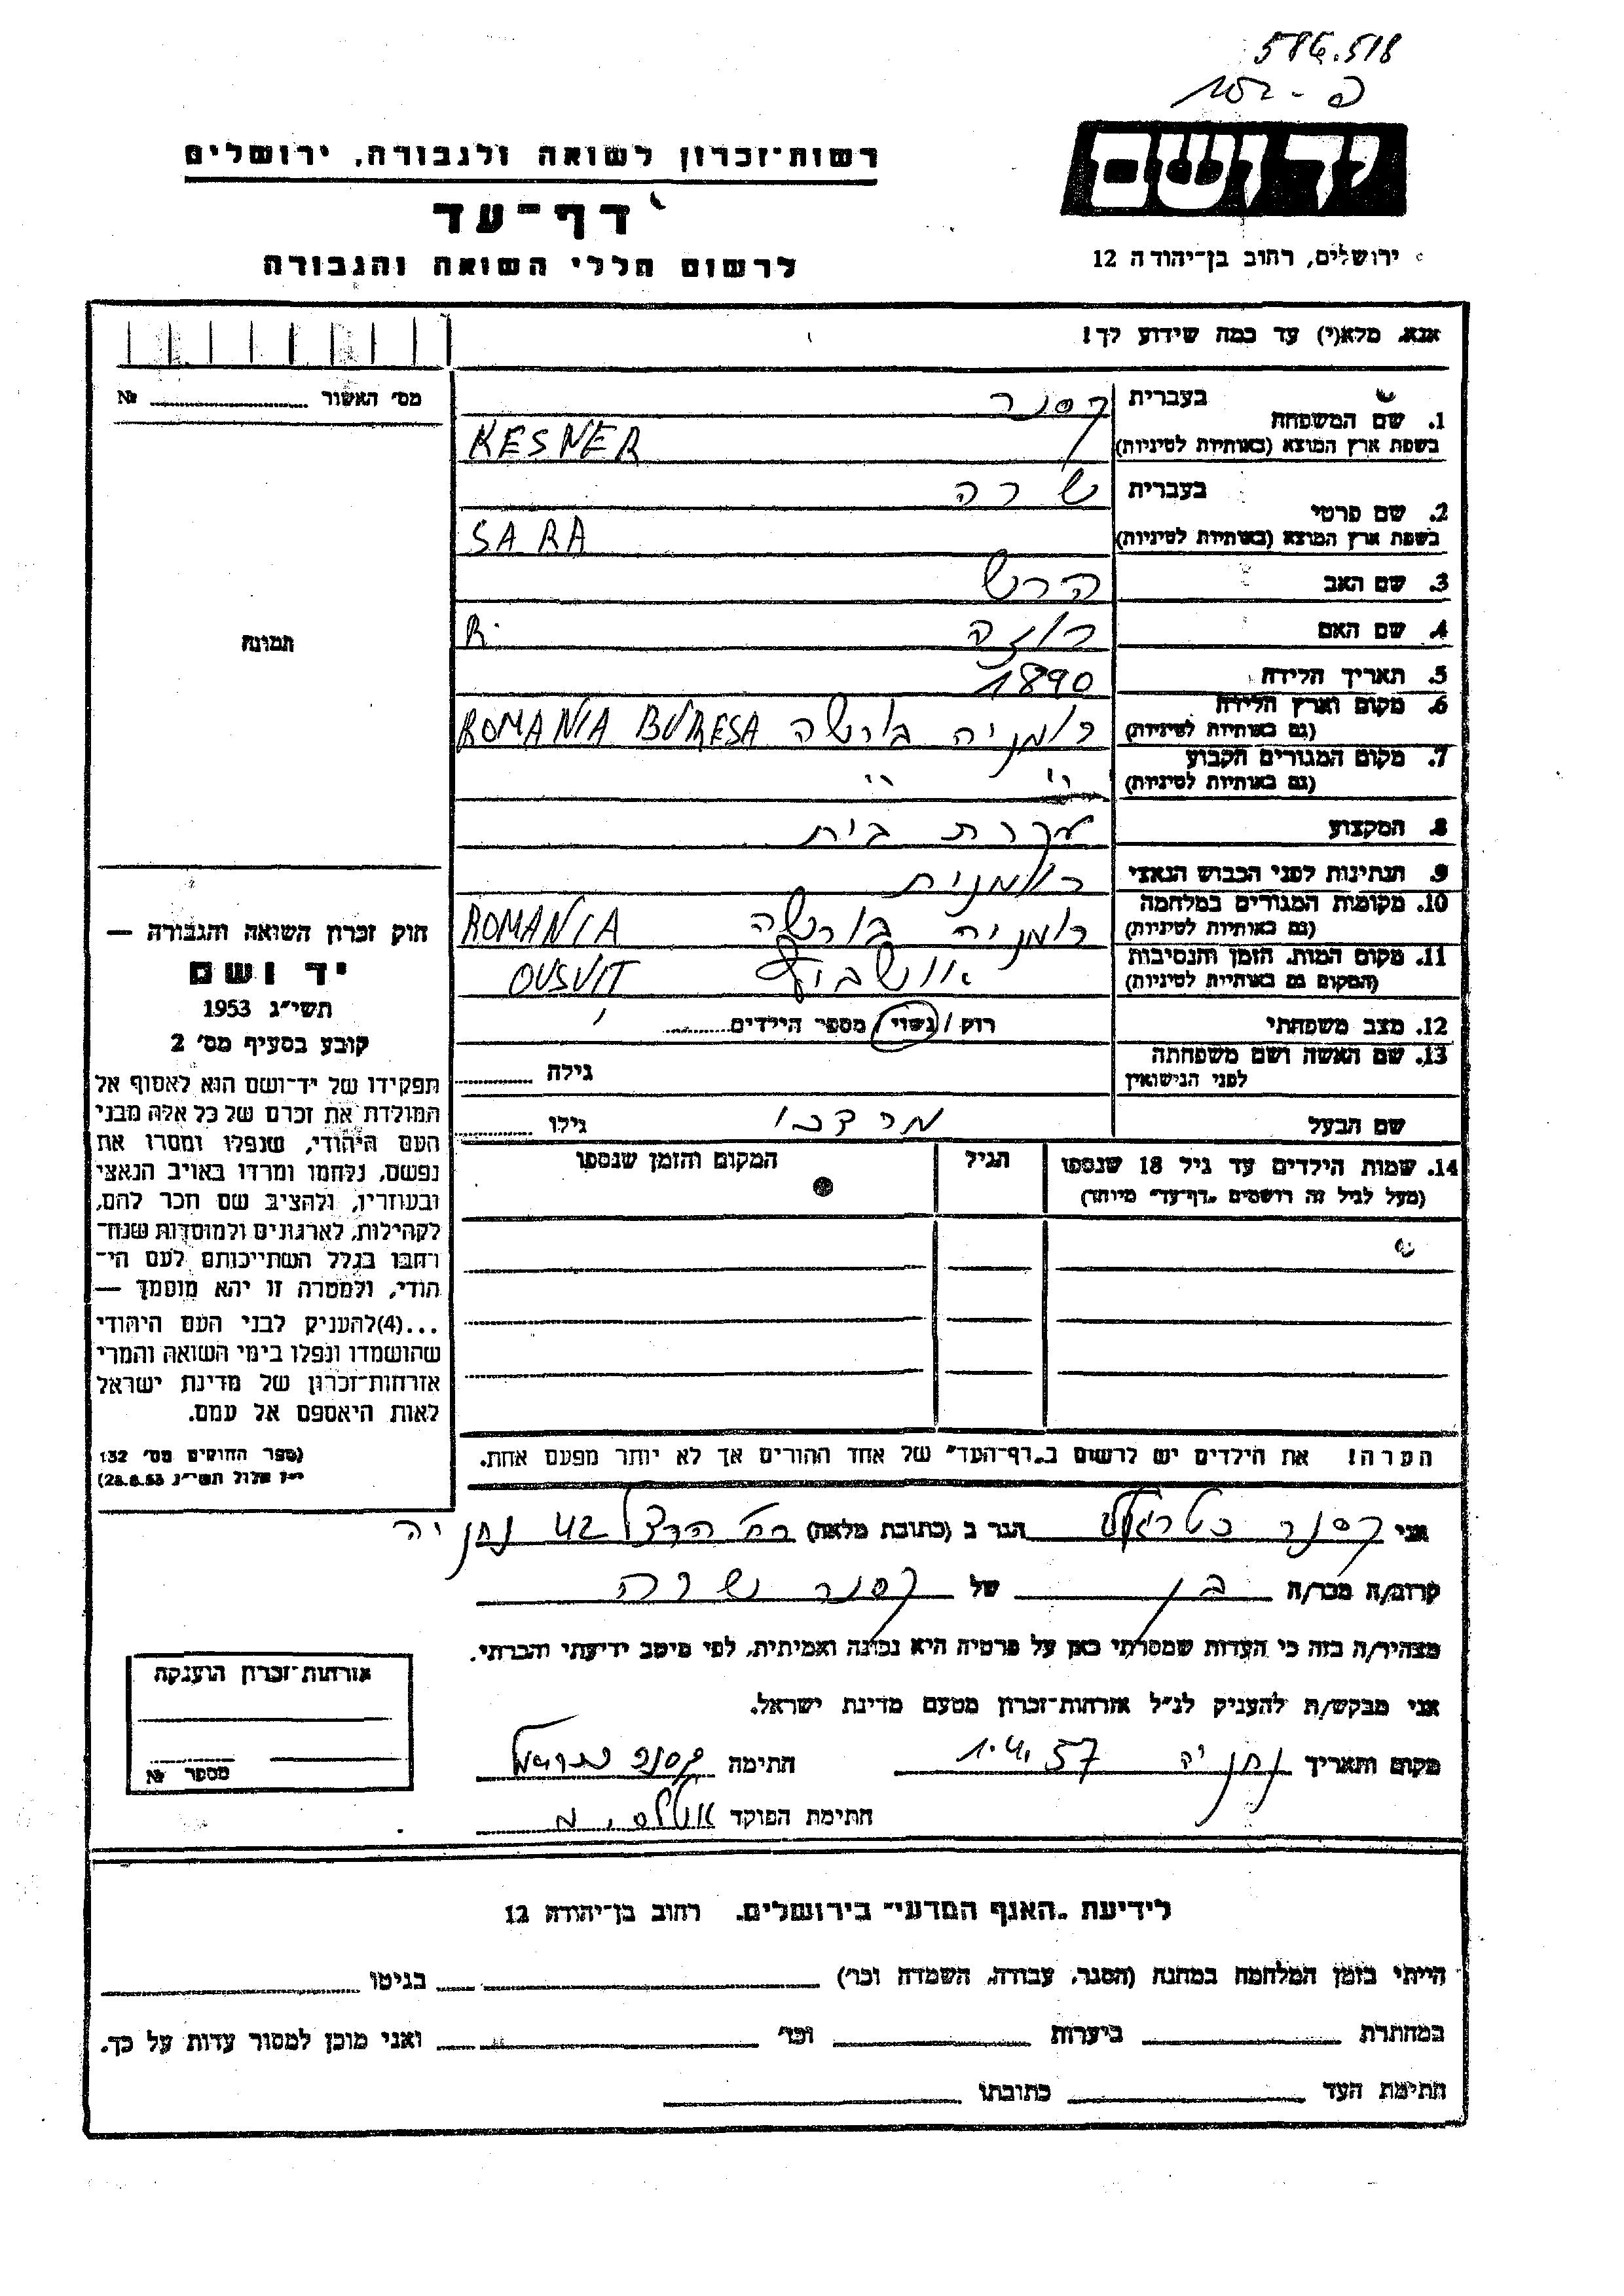 586.518
פ-102
יד ושם
ירושלים, רחוב בן־יהודה 12
רשות־זכרון לשואה ולגבורה, ירושלים
דף־עד
לרשום חללי השואה והגבורה
אנא, מלא(י) עד כמה שידוע לך!
מס׳ האשור № 
תמונה
1. שם המשפחה בעברית קסנר
בשפת ארץ המוצא (באותיות לטיניות) KESNER
2. שם פרטי בעברית שרה
בשפת ארץ המוצא (באותיות לטיניות) SARA
3. שם האב הרש
4. שם האם רוזה R.
5. תאריך הלידה 1890
6. מקום וארץ הלידה (גם באותיות לטיניות) רומניה בורשה ROMANIA BURESA
7. מקום המגורים הקבוע (גם באותיות לטיניות) " "
8. המקצוע עקרת בית
9. הנתינות לפני הכבוש הנאצי רומנית
10. מקומות המגורים במלחמה (גם באותיות לטיניות) רומניה בורשה ROMANIA
11. מקום המות, הזמן והנסיבות (המקום גם באותיות לטיניות) אושביץ OUSVIT
12. מצב משפחתי רווק / נשוי / מספר הילדים
13. שם האשה ושם משפחתה לפני הנישואין גילה
שם הבעל מרדכי גילו
14. שמות הילדים עד גיל 18 שנספו הגיל המקום והזמן שנספו
(מעל לגיל זה רושמים „דף־עד״ מיוחד)
הערה! את הילדים יש לרשום ב„דף־העד״ של אחד ההורים אך לא יותר מפעם אחת.
חוק זכרון השואה והגבורה —
יד ושם
תשי״ג 1953
קובע בסעיף מס׳ 2
תפקידו של יד־ושם הוא לאסוף אל
המולדת את זכרם של כל אלה מבני
העם היהודי, שנפלו ומסרו את
נפשם, נלחמו ומרדו באויב הנאצי
ובעוזריו, ולהציב שם וזכר להם,
לקהילות, לארגונים ולמוסדות שנח־
רבו בגלל השתייכותם לעם הי־
הודי, ולמטרה זו יהא מוסמך —
...(4) להעניק לבני העם היהודי
שהושמדו ונפלו בימי השואה והמרי
אזרחות־זכרון של מדינת ישראל
לאות היאספם אל עמם.
(ספר החוקים מס׳ 132
י״ז אלול תשי״ג 28.8.53)
אני קסנר הגר ב (כתובת מלאה) רח׳ הרצל 42 נתניה
קרוב/ה מכר/ה בן של קסנר שרה
מצהיר/ה בזה כי העדות שמסרתי כאן על פרטיה היא נכונה ואמיתית, לפי מיטב ידיעתי והכרתי.
אני מבקש/ת להעניק לנ״ל אזרחות־זכרון מטעם מדינת ישראל.
מקום ותאריך נתניה 1.4.57 חתימה קסנר
חתימת הפוקד
אזרחות־זכרון הוענקה
מספר №
לידיעת „האגף המדעי״ בירושלים, רחוב בן־יהודה 12
הייתי בזמן המלחמה במחנה (הסגר, עבודה, השמדה וכו׳) בגיטו
במחתרת ביערות וכו׳ ואני מוכן למסור עדות על כך.
חתימת העד כתובתו